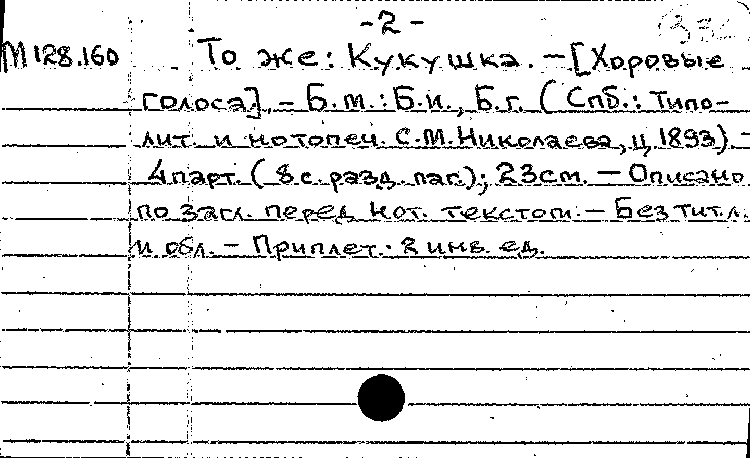 -2-
М128.160 То же: Кукушка. – [Хоровые
голоса]. – Б.м.: Б.и., Б.г. (Спб.: Типо-
лит. и нотопеч. С.М.Николаева, ц. 1893) –
4 парт. (8 с. разд. паг.); 23см. – Описано
по загл. перед нот. текстом. – Без тит.л.
и обл. – Приплет. 2 инв. ед.